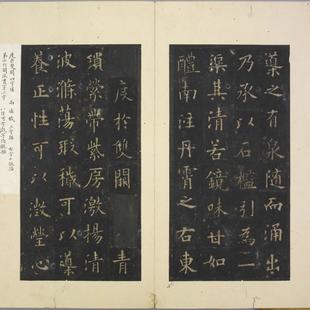 導之有泉隨而涌出
乃承以石檻引為一
渠其清若鏡味甘如
醴南注丹霄之右東
度於雙闕 青
瑣縈帶紫房激揚清
波滌蕩瑕穢可以導
養正性可以澂瑩心